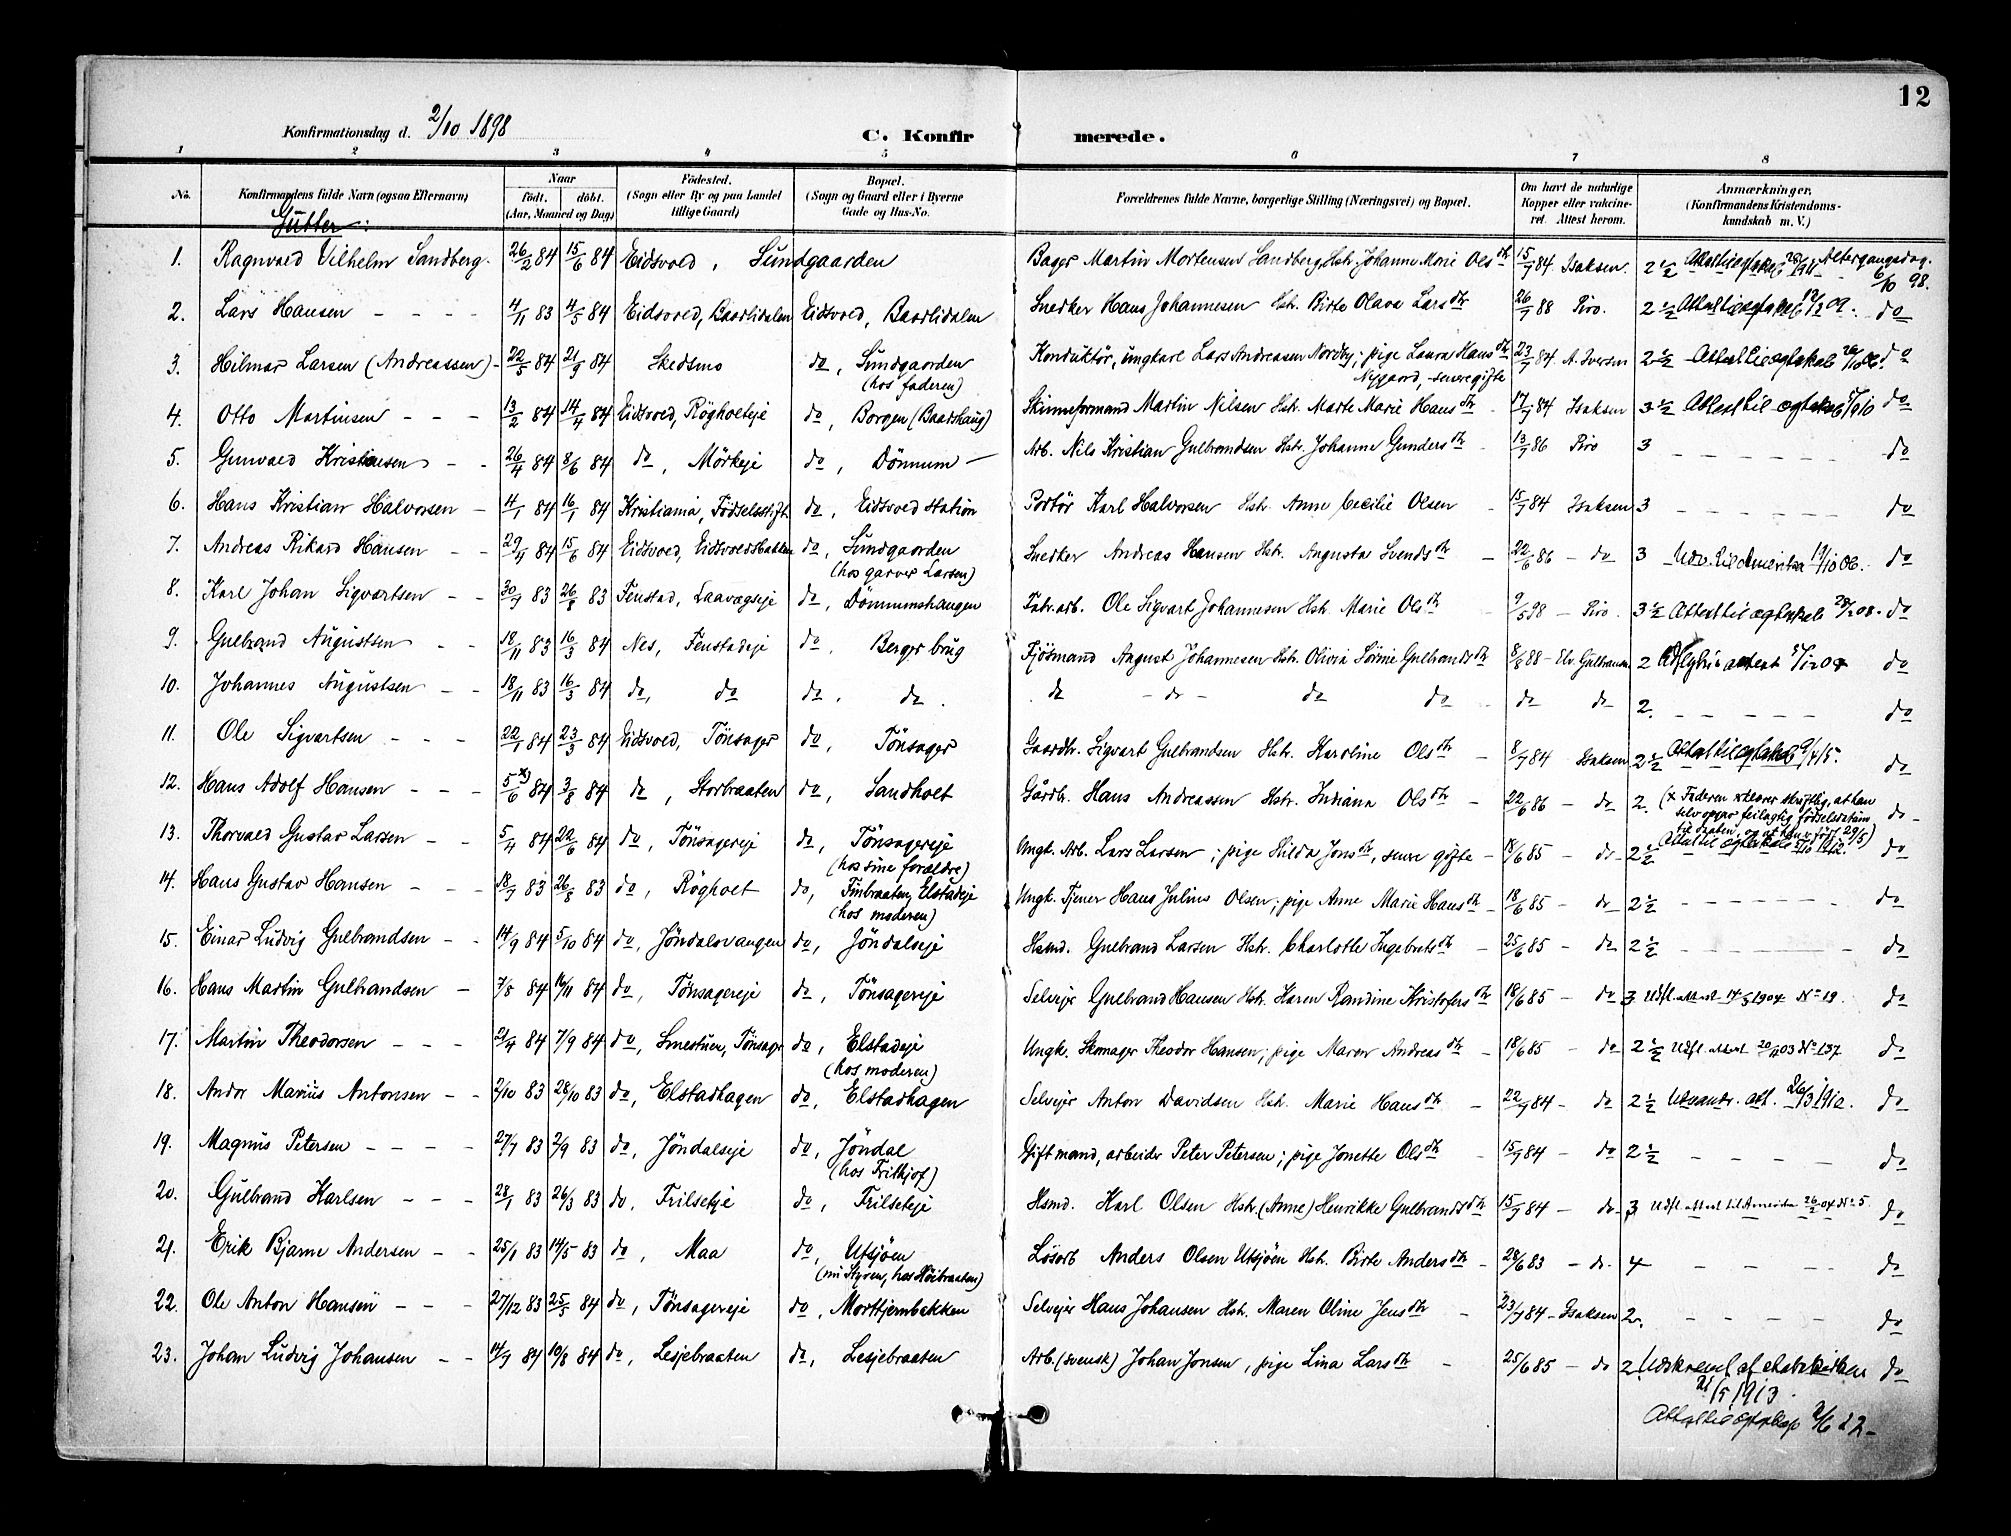 12
Konfirmationsdag d. 2/10 1898
C. Konfirmerede.
1 2 3 4 5 6 7 8
No. Konfirmandens fulde Navn (ogsaa Efternavn) Naar født. døbt. (Aar, Maaned og Dag) Fødested. (Sogn eller By og paa Landet tillige Gaard) Bopæl. (Sogn og Gaard eller i Byerne Gade og Hus-No. Forældrenes fulde Navne, borgerlige Stilling (Næringsvei) og Bopæl. Om havt de naturlige Kopper eller vaccineret. Attest herom. Anmærkninger, (Konfirmandens Kristendomskundskab m. V.)
Gutter:
1. Ragnvald Vilhelm Sandberg. 26/2 84 15/6 84 Eidsvold, Sundgaarden Bager Martin Mortensen Sandberg, Hstr. Johanne Marie Olsdtr 15/7 84 Isaksen. 2 1/2 Altergangsdag. 6/10 98.
2. Lars Hansen - - - - 4/11 83 4/5 84 Eidsvold, Baarlidalen Eidsvold, Baarlidalen Snedker Hans Johannesen Hstr. Birte Olava Larsdtr 26/7 88 Piro. 2 1/2 do
3. Hilmar Larsen (Andreassen) - 22/5 84 21/9 84 Skedsmo do, Sundgaarden (hos faderen) Konduktør, ungkarl Lars Andreasen Nordby; pige Laura Hansdtr Nygaard, senere gifte 23/7 84 A. Iversen 2 1/2 Attest til ægteskab do
4. Otto Martinsen - - - 13/2 84 14/4 84 Eidsvold, Røgholteje do, Borgen (Baarshaug) Skinneformand Martin Nilsen Hstr. Marte Marie Hansdtr 17/7 84 Isaksen 3 1/2 Attest til ægteskab do
5. Gunvald Kristiansen - - 26/4 84 8/6 84 do, Mørkeje do, Dønnum - Arb. Nils Kristian Gulbrandsen Hstr. Johanne Gundersdtr - 13/7 86 Piro 3 - - - - - - do
6. Hans Kristian Halvorsen - 4/1 84 16/1 84 Kristiania, Fødselsstift. do, Eidsvold station Portør Karl Halvorsen Hstr. Anne Cecilie Olsen - 15/7 84 Isaksen 3 - - - - - - do
7. Andreas Rikard Hansen - - 29/4 84 15/6 84 Eidsvold, Eidsvoldsbakken do, Sundgaarden (hos garver Larsen) Snedker Andreas Hansen Hstr. Augusta Svendsdtr - 22/6 86 - do 3 Udv. til Amerika 19/10 06. - do
8. Karl Johan Sigvartsen - - 30/7 83 26/8 83 Fenstad, Laavægseje do, Dønnumshaugen Fabr.arb. Ole Sigvart Johannesen Hstr. Marie Olsdtr - 9/5 98 - Piro. 3 1/2 Attest til ægteskab 28/2 08. do
9. Gulbrand Augustsen - - 18/11 83 16/3 84 Nes, Fenstadeje do. Berger brug Fjøsmand August Johannesen Hstr. Olivia Sørine Gulbrandsdtr 8/8 88 - Elv. Gulbransen 2 do
10. Johannes Augustsen - - 18/11 83 16/3 84 do, do do. do. do - do - do do do do 2. - - - - - do
11. Ole Sigvartsen - - - 22/1 84 23/3 84 Eidsvold, Tønsager do, Tønsager Gaardbr. Sigvart Gulbrandsen Hstr. Karoline Olsdtr - 8/7 84 Isaksen 2 1/2 Attest til ægteskab 9/4 15. do
12. Hans Adolf Hansen - - - 5/6 x) 84 3/8 84 do, Storbraaten do, Sandholt Gårdbr. Hans Andreassen Hstr. Indiana Olsdtr - 22/6 86 - do 2. (x Faderen erklærer skriftlig, at han selv opgav feilagtig fødselsdatum til daaben, og at han er født 29/5) do -
13. Thorvald Gustav Larsen - - 5/4 84 22/6 84 do, Tønsagereje do, Tønsagereje (hos sine forældre) Ungk. Arb. Lars Larsen; pige Hilda Jonsdtr, senere gifte - 18/6 85 - do - 2 1/2 Attest til ægteskab 5/10 1912. do
14. Hans Gustav Hansen - - - 18/7 83 26/8 83 do, Røgholt do, Finbraaten, Elstadeje (hos moderen) Ungk. Tjener Hans Julius Olsen; pige Anne Marie Hansdtr - 18/6 85 - do 2 1/2 - - - - - - do
15. Einar Ludvig Gulbrandsen - - 14/9 84 5/10 84 do, Jøndalsvangen do, Jøndalseje Hsmd. Gulbrand Larsen Hstr. Charlotte Ingebretsdtr - 25/6 85 - do 2 1/2 - - - - do
16. Hans Martin Gulbrandsen - 7/8 84 16/11 84 do, Tønsagereje do, Tønsagereje Selvejer Gulbrand Hansen Hstr. Karen Randine Kristofersdtr 18/6 85 - do 3 Udfl. attest 14/5 1904 No 19. do
17. Martin Theodorsen - - - 21/4 84 7/9 84 do, Smestuen, Tønsager do, Elstadeje (hos moderen) Ungk. Skomager Theodor Hansen; pige Maren Andreasdtr - 18/6 85 - do 2 1/2 Udfl. attest 20/11 03 No 137 do
18. Andor Marius Antonsen - - 2/10 83 28/10 83 do, Elstadhagen do, Elstadhagen Selvejer Anton Davidsen Hstr. Marie Hansdtr - 22/7 84 - do 2 1/2 Utvandr. att. 26/3 1912. do
19. Magnus Petersen - - - - 27/7 83 2/9 83 do, Jøndalseje do, Jøndal (hos Frithjof) Gift mand, arbeider Peter Petersen; pige Jonette Olsdtr - 15/7 84 - do 2 1/2 - - - - do
20. Gulbrand Karlsen - - - 28/1 83 26/3 83 do, Frilseteje do, Frilseteje Hsmd. Karl Olsen Hstr. (Anne) Henrikke Gulbrandsdtr 15/7 84 - do - 3 Udfl. attest til Amerika 26/2 04 No 5. do
21. Erik Bjarne Andersen - - 25/1 83 14/5 83 do, Maa do, Utsjøen (nu Styren, hos Høibraaten) Løsarb Anders Olsen Utsjøen Hstr. Birte Andersdtr - 28/6 83 - do. 4 - - - - do
22. Ole Anton Hansen - - - 27/12 83 25/5 84 do, Tønsagereje do, Morttjernbakken Selvejer Hans Johansen Hstr. Maren Oline Jensdtr - 23/7 84 - Isaksen 2. - - - - do
23. Johan Ludvig Johansen - - 14/7 84 10/8 84 do, Lesjebraaten do, Lesjebraaten Arb. (svensk) Johan Jonsen, pige Lina Larsdtr - 25/6 85 - do 2 Udskrevet af statskirken do
21/5 1913.
Attest til ægteskap 2/6 22 -